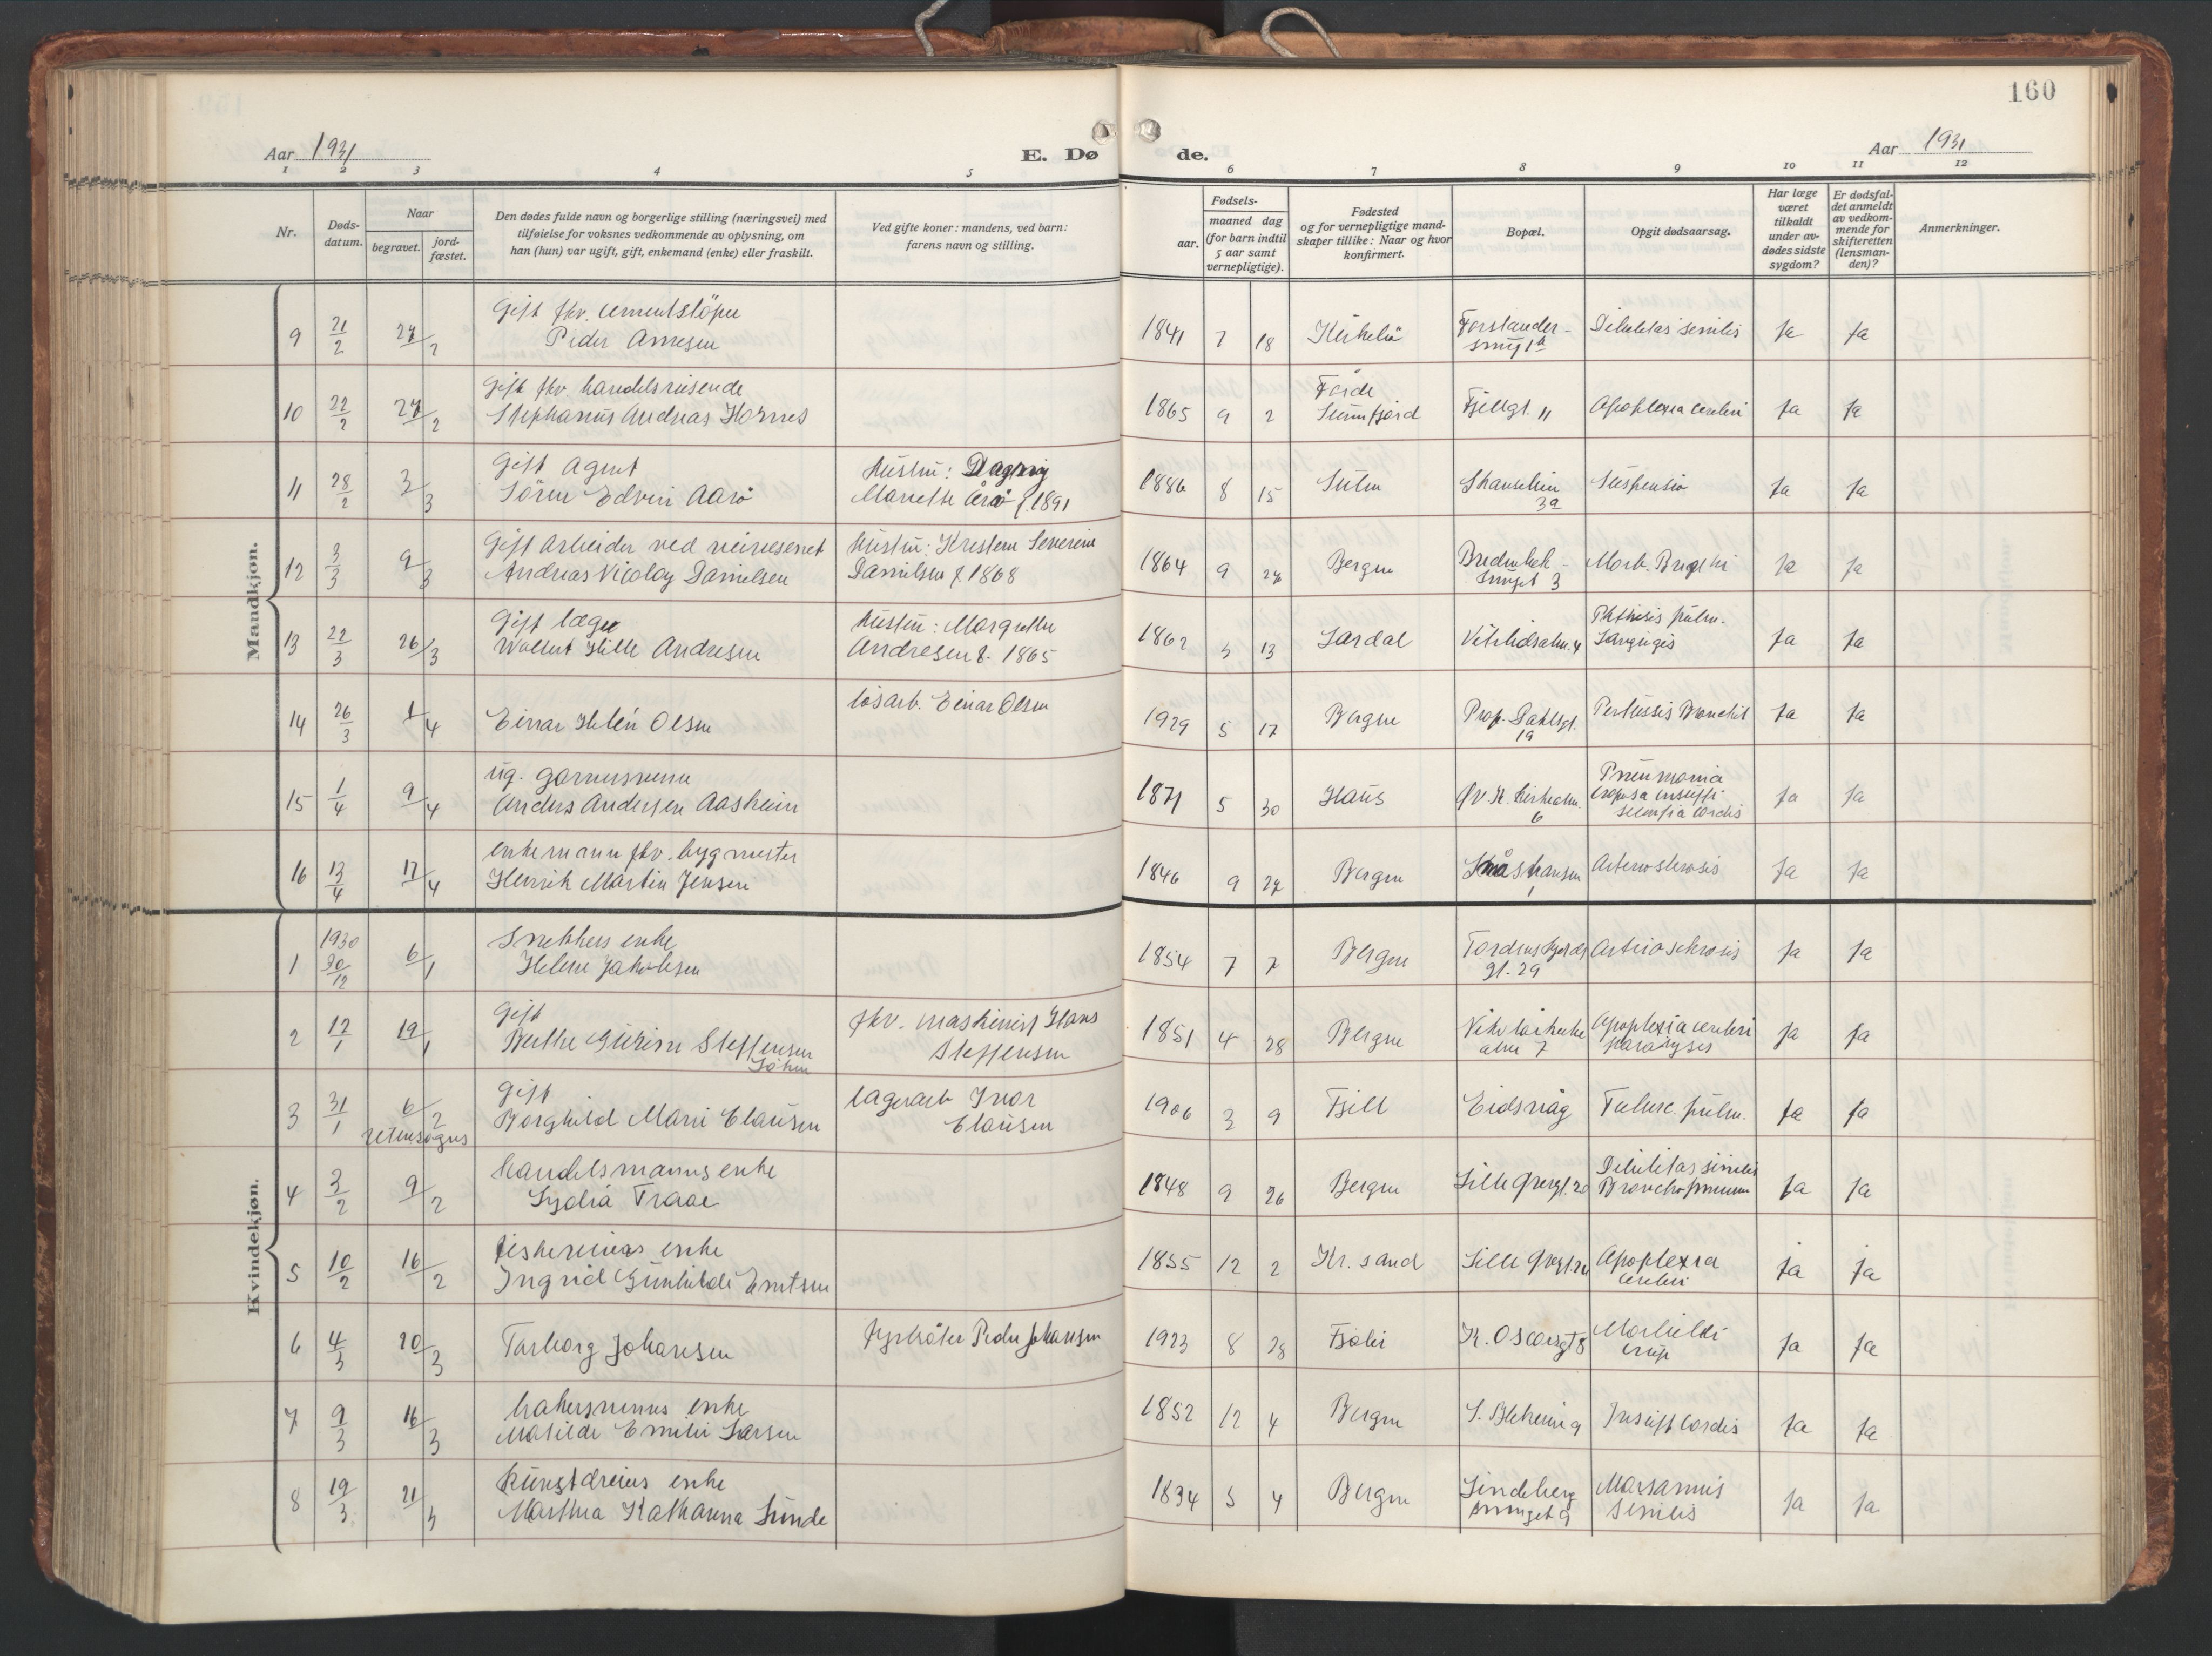 160
Aar 1931
E. Dø de.
Aar 1931
1 2 3 4 5 6 7 8 9 10 11 12
Nr.
Døds-
datum.
Naar
begravet.
jord-
fæstet.
Den dødes fulde navn og borgerlige stilling (næringsvei) med
tilføielse for voksnes vedkommende av oplysning, om
han (hun) var ugift, gift, enkemand (enke) eller fraskilt.
Ved gifte koner: mandens, ved barn:
farens navn og stilling.
Fødsels-
aar.
maaned dag
(for barn indtil
5 aar samt
vernepligtige).
Fødested
og for vernepligtige mand-
skaper tillike: Naar og hvor
konfirmert.
Bopæl.
Opgit dødsaarsag.
Har læge
været
tilkaldt
under av-
dødes sidste
sygdom?
Er dødsfal-
det anmeldt
av vedkom-
mende for
skifteretten
(lensman-
den)?
Anmerkninger.
Mandkjøn.
Gift fhv. cementstöper
9 21/2 27/2 Peder Arnesen 1841 7 18 Forstander-
smug 1a Debilitas senilis Ja Ja
Gift fhv. handelsreisende
10 22/2 27/2 Stephanus Andreas Hornes 1865 9 2 Förde
Sunnfjord Fjellgt. 11 Apoplexia cerebri Ja Ja
Gift Agent
11 28/2 3/3 Sören Edvin Aarö Hustru: Dagny
Marselie Årö f. 1891 1886 8 15 Sulen Skanselien
3a Suspensio Ja Ja
Gift Arbeider ved veivesenet
12 3/3 9/3 Andreas Nicolay Danielsen Hustru: Kristern Severine
Danielsen f. 1868 1864 9 27 Bergen Bredenbek-
smuget 3 Morb. Brightii Ja Ja
Gift læge
13 22/3 26/3 Wollert Hille Andresen Hustru: Margrethe
Andresen f. 1865 1862 5 13 Lærdal Vetrlidsalm. 4 Phthisis pulm.
Laryngis Ja Ja
14 26/3 1/4 Einar Helén Olsen løsarb. Einar Olsen 1929 5 17 Bergen Prof. Dahlsgt.
19 Pertussis Bronchit Ja Ja
ug. garnersvenn
15 1/4 9/4 Anders Andersen Aasheim 1871 5 30 Haus Øv. K. kirkealm.
6 Pneumonia
croposa insuffi-
sientia cordis Ja Ja
enkemann fhv. bygmester
16 13/4 17/4 Henrik Martin Jensen 1846 9 27 Bergen Skanskansen
1 Arteriosklerosis Ja Ja
Kvindekjøn.
1 1930
30/12 6/1 Snekkers enke
Helene Jakobsen 1854 7 7 Bergen Tordenskjolds
gt. 29 Arteriosklerosis Ja Ja
2 12/1 19/1 Gift
Berthe Gurine Steffensen fhv. maskinist Hans
Steffensen 1851 4 28 Bergen Nikolaikirke
alm 7 Apoplexia cerebri
paralyses Ja Ja
3 31/1 6/2
utensogns Gift
Borghild Marie Clausen lagerarb Ivar
Clausen 1906 3 9 Fjell Eidsvåg Tuberc. pulm. Ja Ja
4 3/2 9/2 handelsmanns enke
Lydia Traae 1848 9 26 Bergen Lille Øvregt. 20 Debilitas senilis
Bronchopneum Ja Ja
5 10/2 16/2 fiskerens enke
Ingrid Gunhilde Berntsen 1855 12 2 Kr. sand Lille Øvregt. 20 Apoplexia
cerebri ja ja
6 4/3 10/3 Torborg Johansen fyrböter Peder Johansen 1923 8 28 Fjaler K. Oscarsgt 8 Morbilli
crup Ja Ja
7 9/3 16/3 bakersvenns enke
Matilde Emilie Larsen 1852 12 4 Bergen S. Blekevei 9 Insuff Cordis Ja Ja
8 19/3 21/3 Kunstdreiers enke
Marthea Katharina Sunde 1834 5 4 Bergen Lindeberg
smuget 9 Marasmus
senilis Ja Ja